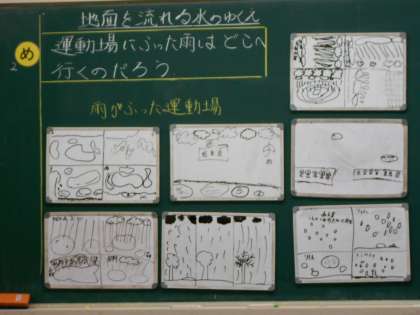 地面を流れる水のゆくえ
め
運動場にふった雨は どこへ
行くのだろう
雨がふった運動場